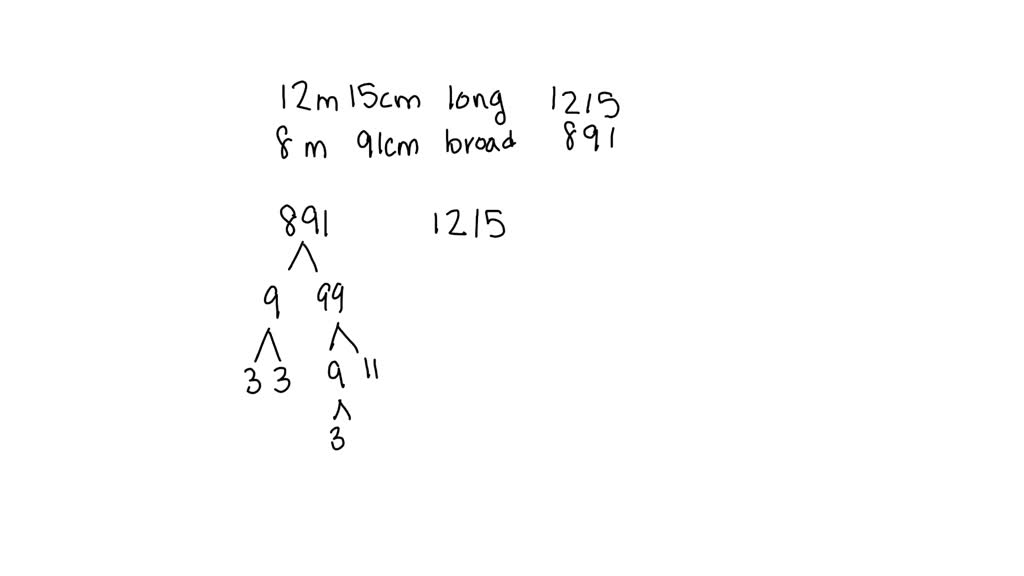 12m 15cm long 1215
8 m 91cm broad 891
891 1215
9 99
3 3 9 11
3